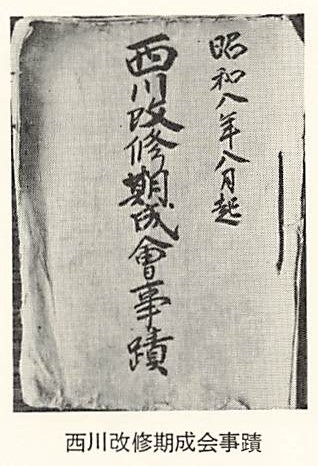 昭和八年八月起
西川改修期成會事蹟
西川改修期成会事蹟